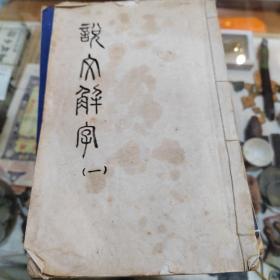 說文解字
(一)